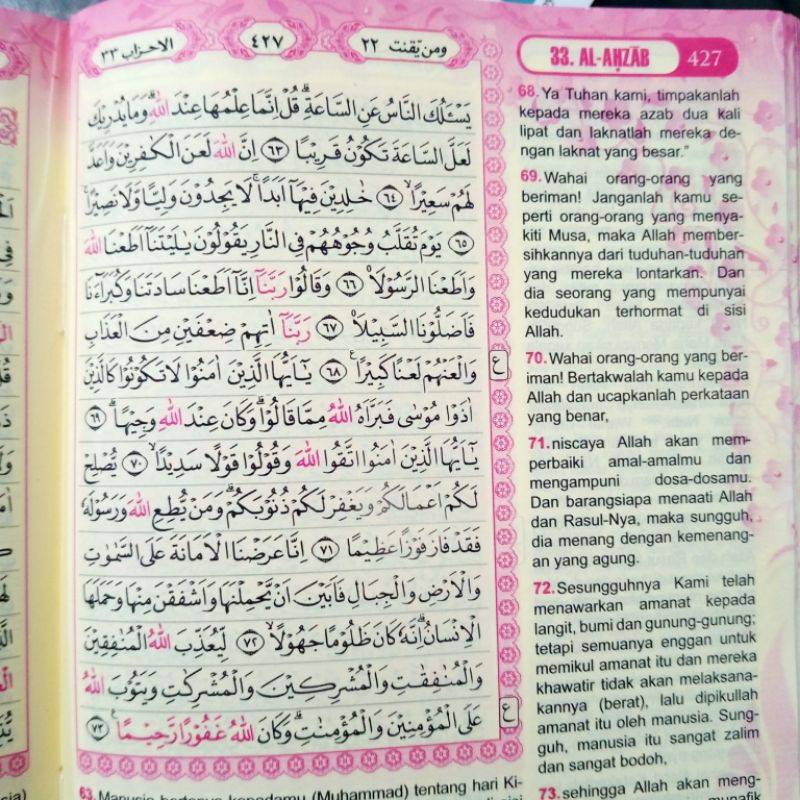 ومن يقنت ٢٢
٤٢٧
الاحزاب ٣٣
يَسْـَٔلُكَ النَّاسُ عَنِ السَّاعَةِۗ قُلْ اِنَّمَا عِلْمُهَا عِنْدَ اللّٰهِۗ وَمَا يُدْرِيْكَ
لَعَلَّ السَّاعَةَ تَكُوْنُ قَرِيْبًا ٦٣ اِنَّ اللّٰهَ لَعَنَ الْكٰفِرِيْنَ وَاَعَدَّ
لَهُمْ سَعِيْرًاۙ ٦٤ خٰلِدِيْنَ فِيْهَآ اَبَدًاۚ لَا يَجِدُوْنَ وَلِيًّا وَّلَا نَصِيْرًاۚ
٦٥ يَوْمَ تُقَلَّبُ وُجُوْهُهُمْ فِى النَّارِ يَقُوْلُوْنَ يٰلَيْتَنَآ اَطَعْنَا اللّٰهَ
وَاَطَعْنَا الرَّسُوْلَا۠ ٦٦ وَقَالُوْا رَبَّنَآ اِنَّآ اَطَعْنَا سَادَتَنَا وَكُبَرَاۤءَنَا
فَاَضَلُّوْنَا السَّبِيْلَا۠ ٦٧ رَبَّنَآ اٰتِهِمْ ضِعْفَيْنِ مِنَ الْعَذَابِ
وَالْعَنْهُمْ لَعْنًا كَبِيْرًا ࣖ ٦٨ يٰٓاَيُّهَا الَّذِيْنَ اٰمَنُوْا لَا تَكُوْنُوْا كَالَّذِيْنَ
اٰذَوْا مُوْسٰى فَبَرَّاَهُ اللّٰهُ مِمَّا قَالُوْاۗ وَكَانَ عِنْدَ اللّٰهِ وَجِيْهًاۗ ٦٩
يٰٓاَيُّهَا الَّذِيْنَ اٰمَنُوا اتَّقُوا اللّٰهَ وَقُوْلُوْا قَوْلًا سَدِيْدًاۙ ٧٠ يُّصْلِحْ
لَكُمْ اَعْمَالَكُمْ وَيَغْفِرْ لَكُمْ ذُنُوْبَكُمْۗ وَمَنْ يُّطِعِ اللّٰهَ وَرَسُوْلَهٗ
فَقَدْ فَازَ فَوْزًا عَظِيْمًا ٧١ اِنَّا عَرَضْنَا الْاَمَانَةَ عَلَى السَّمٰوٰتِ
وَالْاَرْضِ وَالْجِبَالِ فَاَبَيْنَ اَنْ يَّحْمِلْنَهَا وَاَشْفَقْنَ مِنْهَا وَحَمَلَهَا
الْاِنْسَانُۗ اِنَّهٗ كَانَ ظَلُوْمًا جَهُوْلًاۙ ٧٢ لِّيُعَذِّبَ اللّٰهُ الْمُنٰفِقِيْنَ
وَالْمُنٰفِقٰتِ وَالْمُشْرِكِيْنَ وَالْمُشْرِكٰتِ وَيَتُوْبَ اللّٰهُ
عَلَى الْمُؤْمِنِيْنَ وَالْمُؤْمِنٰتِۗ وَكَانَ اللّٰهُ غَفُوْرًا رَّحِيْمًا ࣖ ٧٣
ع
ع
33. AL-AḤZĀB 427
68. Ya Tuhan kami, timpakanlah
kepada mereka azab dua kali
lipat dan laknatlah mereka de-
ngan laknat yang besar."
69. Wahai orang-orang yang
beriman! Janganlah kamu se-
perti orang-orang yang menya-
kiti Musa, maka Allah member-
sihkannya dari tuduhan-tuduhan
yang mereka lontarkan. Dan
dia seorang yang mempunyai
kedudukan terhormat di sisi
Allah.
70. Wahai orang-orang yang ber-
iman! Bertakwalah kamu kepada
Allah dan ucapkanlah perkataan
yang benar,
71. niscaya Allah akan mem-
perbaiki amal-amalmu dan
mengampuni dosa-dosamu.
Dan barangsiapa menaati Allah
dan Rasul-Nya, maka sungguh,
dia menang dengan kemenang-
an yang agung.
72. Sesungguhnya Kami telah
menawarkan amanat kepada
langit, bumi dan gunung-gunung;
tetapi semuanya enggan untuk
memikul amanat itu dan mereka
khawatir tidak akan melaksana-
kannya (berat), lalu dipikullah
amanat itu oleh manusia. Sung-
guh, manusia itu sangat zalim
dan sangat bodoh,
73. sehingga Allah akan meng-
63. Manusia bertanya kepadamu (Muhammad) tentang hari Ki-